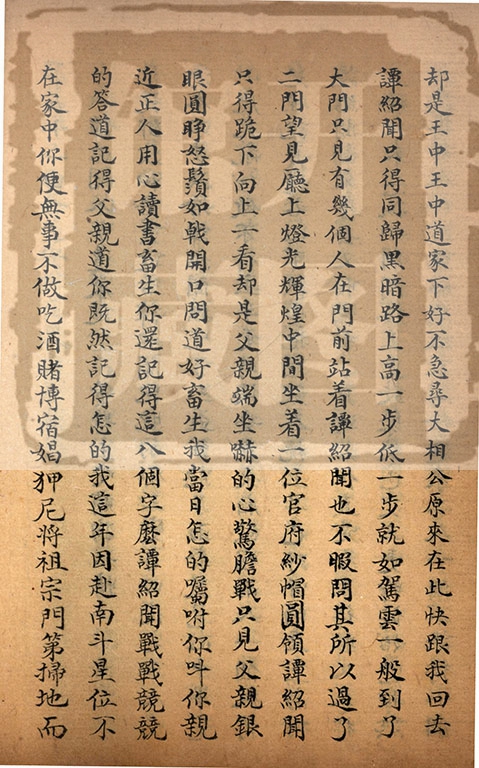 却是王中王中道家下好不急尋大相公原來在此快跟我回去
譚紹聞只得同歸黑暗路上高一步低一步就如駕雲一般到了
大門只見有幾個人在門前站着譚紹聞也不暇問其所以過了
二門望見廳上燈光輝煌中間坐着一位官府紗帽圓領譚紹聞
只得跪下向上一看却是父親端坐嚇的心驚膽戰只見父親銀
眼圓睜怒鬚如戟開口問道好畜生我當日怎的囑咐你叫你親
近正人用心讀書畜生你還記得這八個字麼譚紹聞戰戰兢兢
的答道記得父親道你既然記得怎的我這年因赴南斗星位不
在家中你便無事不做吃酒賭博宿娼狎尼將祖宗門第掃地而